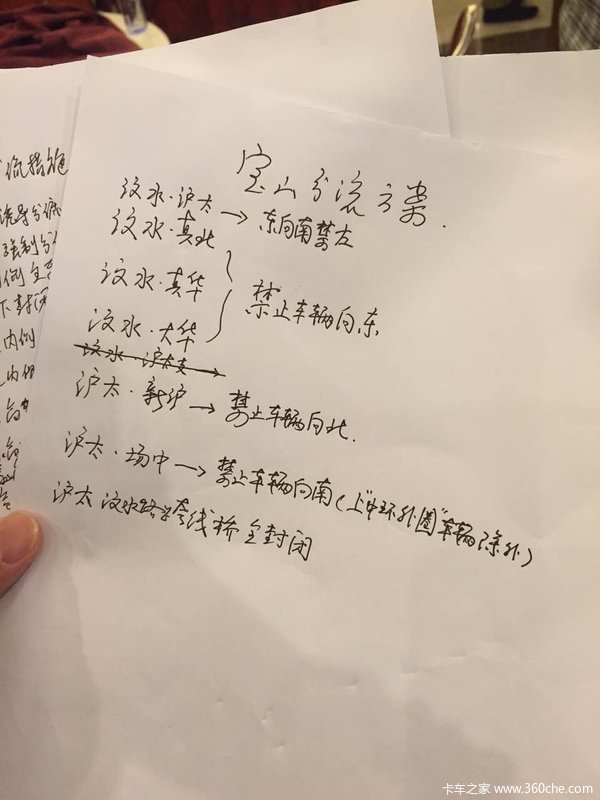 宝山分流方案.
汶水·沪太 → 东向南禁左
汶水·真北
汶水·真华 禁止车辆向东
汶水·大华
沪太·新沪 → 禁止车辆向北.
沪太·场中 → 禁止车辆向南(上"中环外圈"车辆除外)
沪太汶水路跨线桥全封闭
流措施
卡车之家 www.360che.com